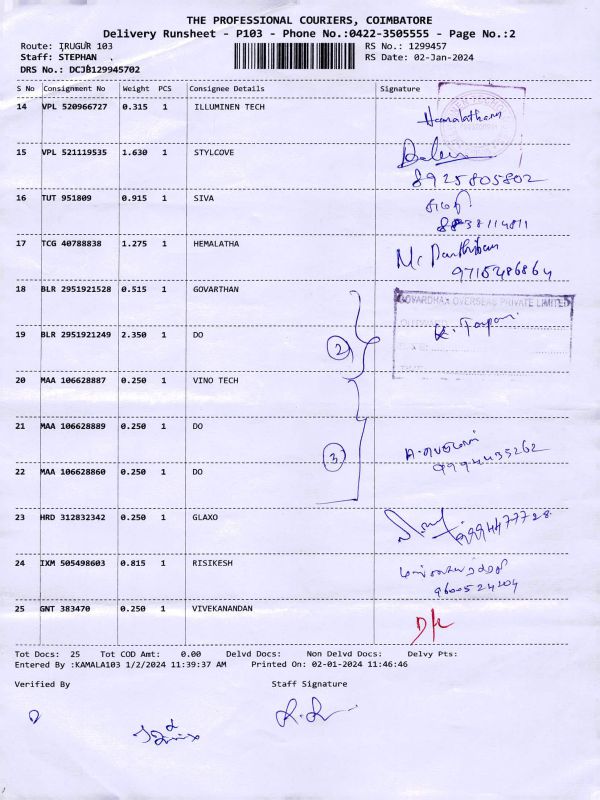 THE PROFESSIONAL COURIERS, COIMBATORE
Delivery Runsheet - P103 - Phone No.:0422-3505555 - Page No.:2
Route: IRUGUR 103 RS No.: 1299457
Staff: STEPHAN . RS Date: 02-Jan-2024
DRS No.: DCJB129945702
S No Consignment No Weight PCS Consignee Details Signature
14 VPL 520966727 0.315 1 ILLUMINEN TECH Hemalatha
15 VPL 521119535 1.630 1 STYLCOVE
8925805802
16 TUT 951809 0.915 1 SIVA
8838114811
17 TCG 40788838 1.275 1 HEMALATHA
9715486864
18 BLR 2951921528 0.515 1 GOVARTHAN GOVARDHAN OVERSEAS PRIVATE LIMITED
19 BLR 2951921249 2.350 1 DO 2
20 MAA 106628887 0.250 1 VINO TECH
21 MAA 106628889 0.250 1 DO
22 MAA 106628860 0.250 1 DO 3 9994435262
23 HRD 312832342 0.250 1 GLAXO 9994477728
24 IXM 505498603 0.815 1 RISIKESH
9600524204
25 GNT 383470 0.250 1 VIVEKANANDAN D/L
Tot Docs: 25 Tot COD Amt: 0.00 Delvd Docs: Non Delvd Docs: Delvy Pts:
Entered By :KAMALA103 1/2/2024 11:39:37 AM Printed On: 02-01-2024 11:46:46
Verified By Staff Signature